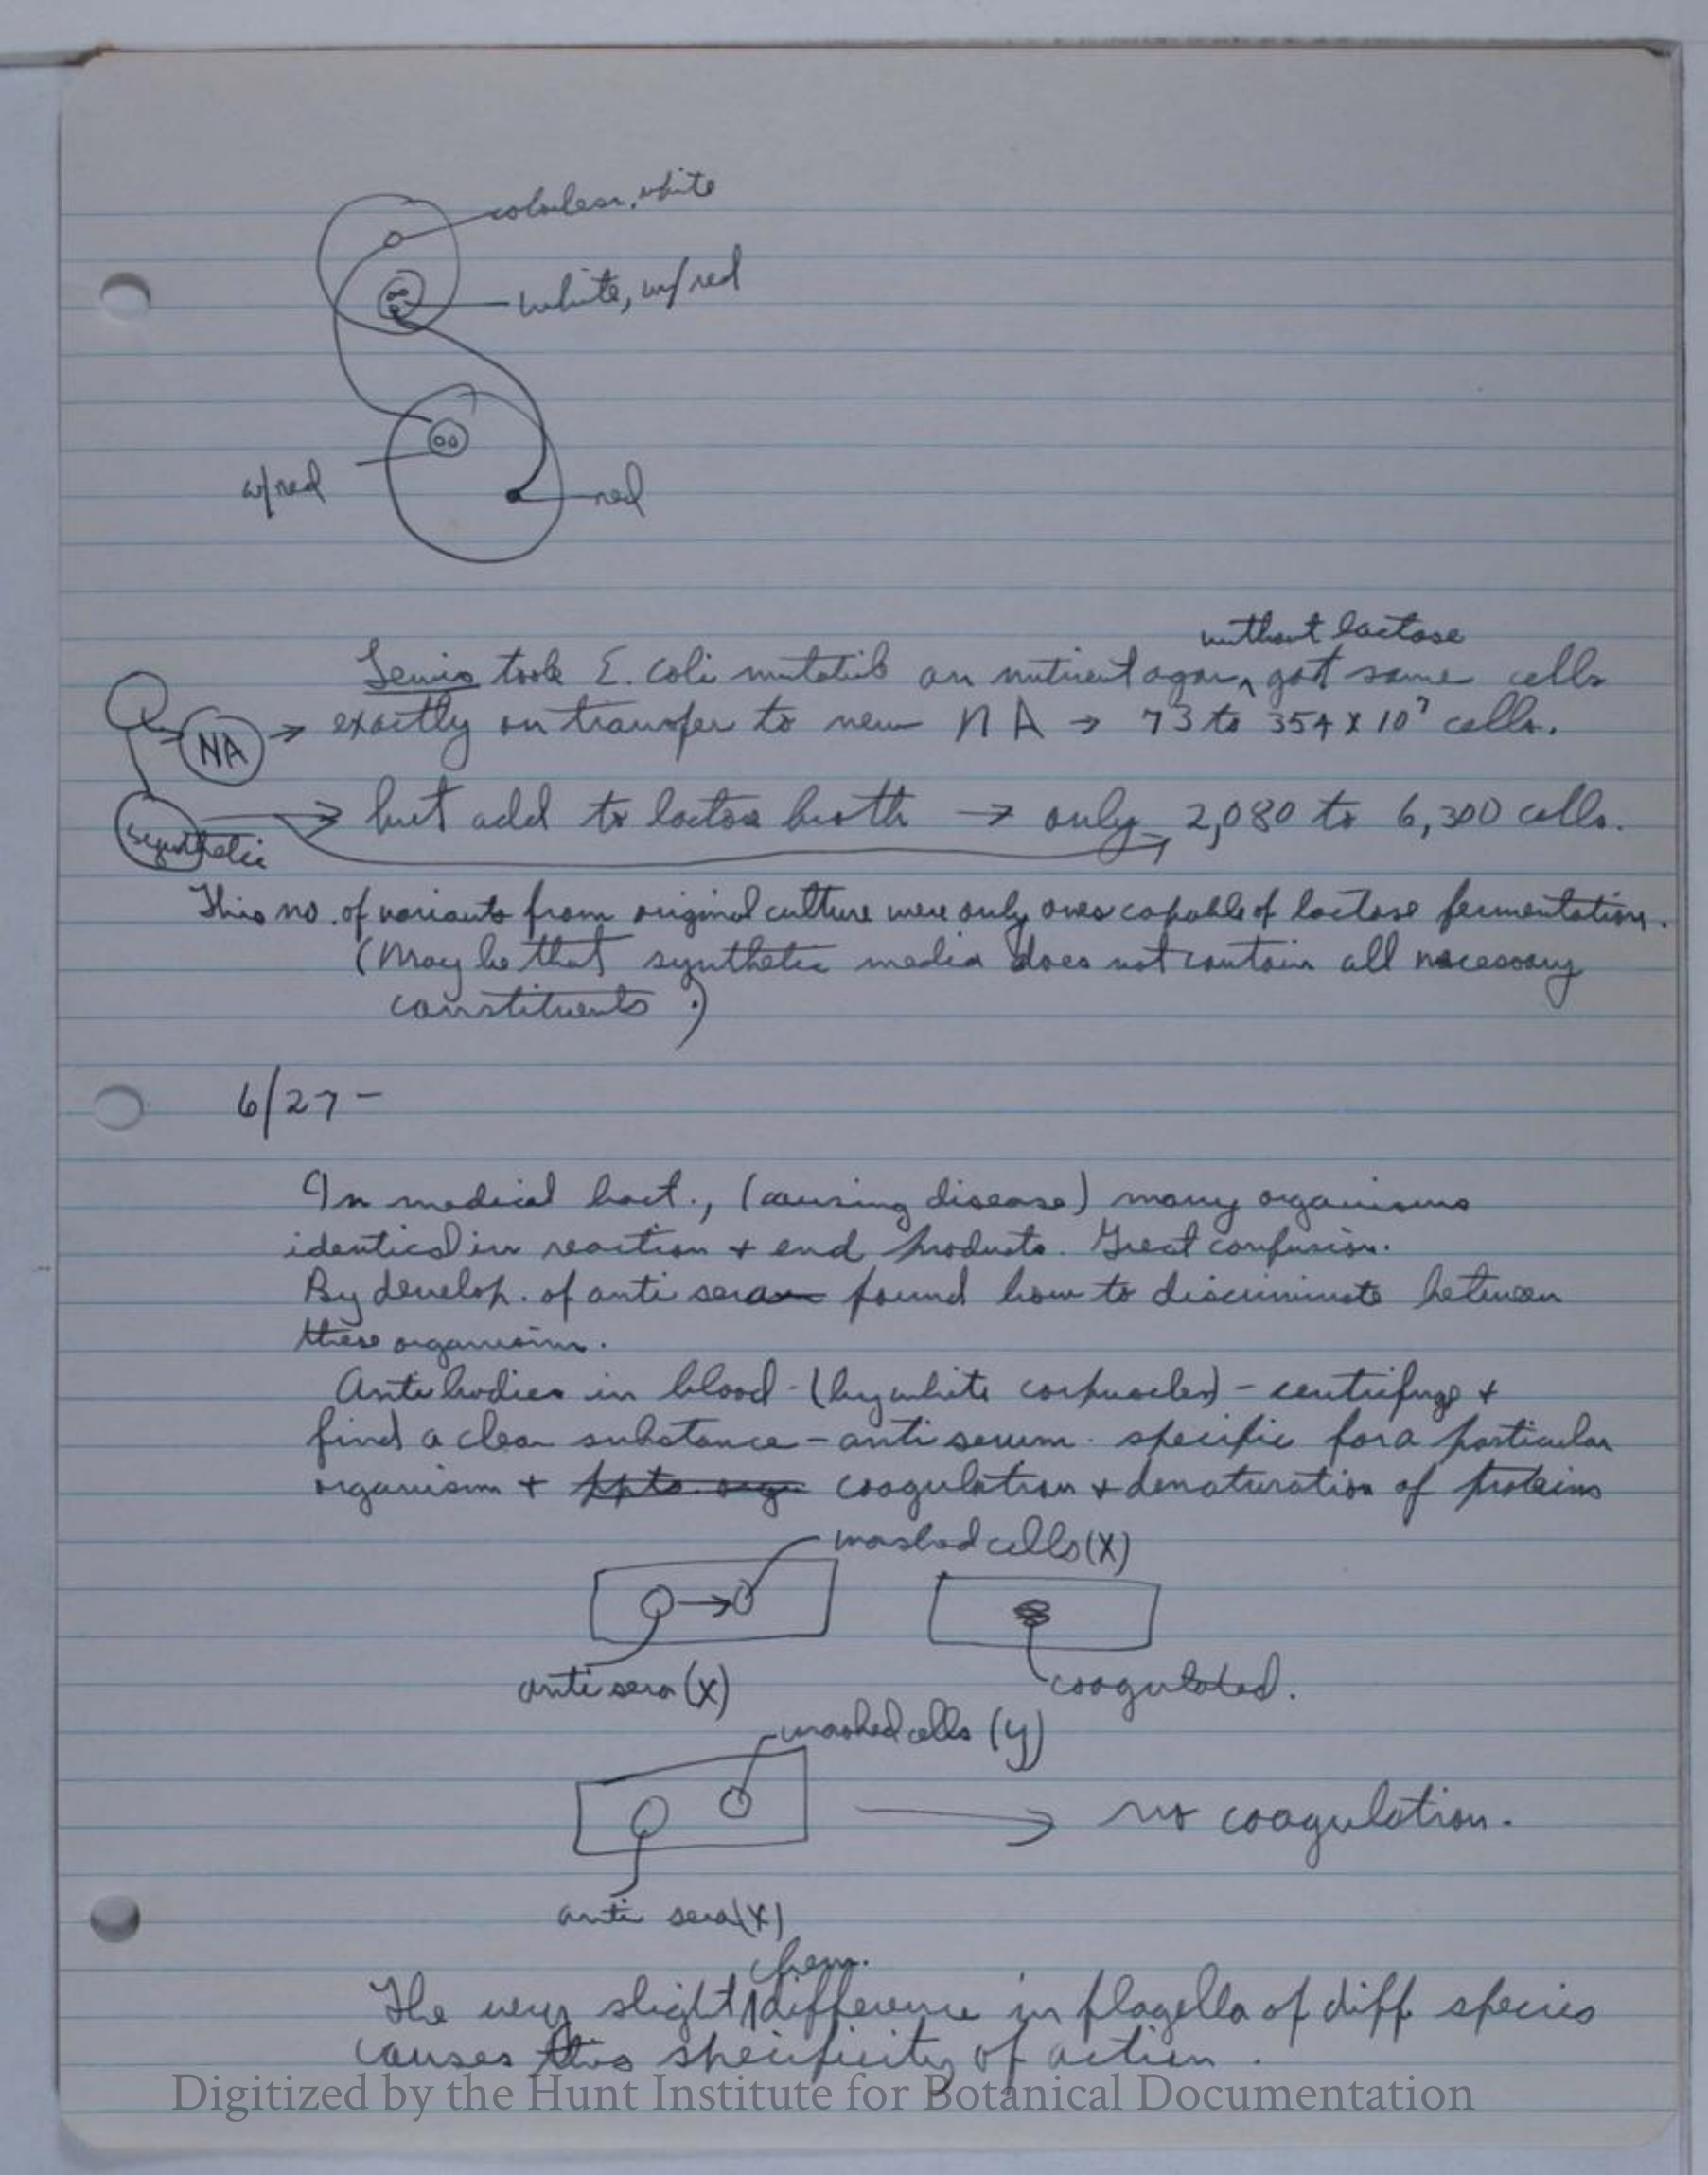 colorless, white
white, w/red
w/red
red
without lactose
Lewis took E. Coli mutabile on nutrient agar ^ got same cells
NA → exactly on transfer to new NA → 73 to 354 x 10⁷ cells.
synthetic → but add to lactose broth → only 2,080 to 6,300 cells.
This no. of variants from original culture were only ones capable of lactose fermentation.
(May be that synthetic media does not contain all necessary
constituents.)
6/27 -
In medical bact., (causing disease) many organisms
identical in reaction + end products. Great confusion.
By develop. of anti sera found how to discriminate between
these organisms.
Antibodies in blood - (by white corpuscles) - centrifuge +
find a clear substance - anti serum. specific for a particular
organism + ppts. org. coagulation + denaturation of proteins
washed cells (X)
anti sera (X)
coagulated.
washed cells (y)
no coagulation.
anti sera (X)
chem.
The very slight ^ difference in flagella of diff species
causes this specificity of action.
Digitized by the Hunt Institute for Botanical Documentation